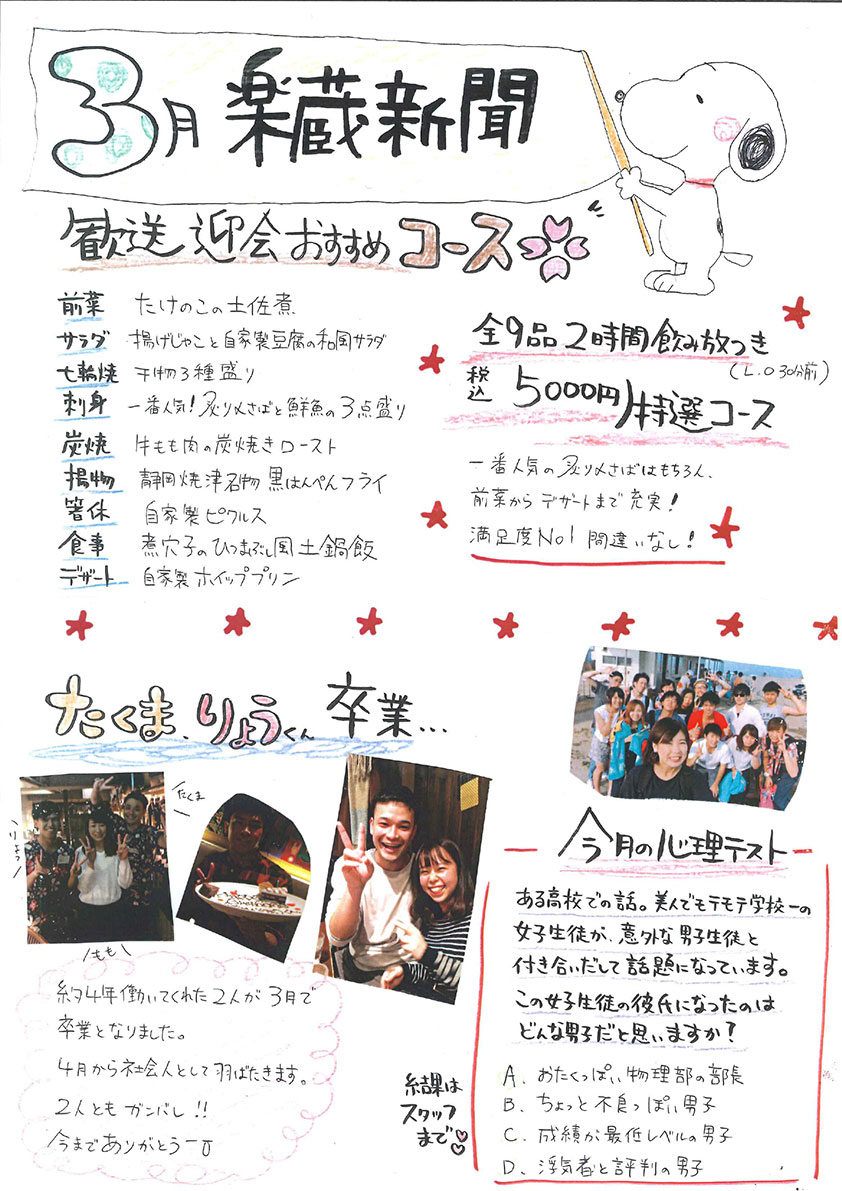 3月 楽蔵新聞
歓送迎会おすすめコース
前菜 たけのこの土佐煮
サラダ 揚げじゃこと自家製豆腐の和風サラダ
七輪焼 干物3種盛り
刺身 一番人気！炙り〆さばと鮮魚の3点盛り
炭焼 牛もも肉の炭焼きロースト
揚物 静岡焼津名物 黒はんぺんフライ
箸休 自家製ピクルス
食事 煮穴子のひつまぶし風土鍋飯
デザート 自家製ホイッププリン
全9品2時間飲み放つき
(L.O 30分前)
税込 5000円 特選コース
一番人気の炙り〆さばはもちろん、
前菜からデザートまで充実！
満足度No1 間違いなし！
たくま、りょうくん 卒業…
たくま
りょう
もも
約4年働いてくれた2人が3月で
卒業となりました。
4月から社会人として羽ばたきます。
2人ともガンバレ!!
今までありがとう
結果は
スタッフ
まで
今月の心理テスト
ある高校での話。美人でモテモテ学校一の
女子生徒が、意外な男子生徒と
付き合いだして話題になっています。
この女子生徒の彼氏になったのは
どんな男子だと思いますか？
A. おたくっぽい物理部の部長
B. ちょっと不良っぽい男子
C. 成績が最低レベルの男子
D. 浮気者と評判の男子